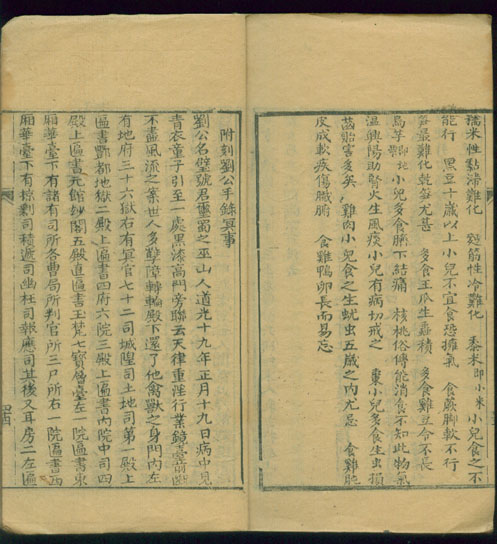 糯米性黏滯難化　麪筋性冷難化　黍米即小米小兒食之不
能行　黑豆十歲以上小兒不宜食恐壅氣　食蕨脚軟不行
笋最難化乾笋尤甚　多食王瓜生疳積　多食雞豆令不長
烏芋小兒多食臍下結痛　核桃俗傳能消食不知此物氣
温興陽助腎火生風痰小兒有病切戒之　棗小兒多食生虫損
齒貽害多矣　雞肉小兒食之生蚘虫五歲之內尤忌　食雞肫
皮成軟疾傷臟腑　食雞鴨卵長而易忘
附刻劉公手錄冥事
劉公名璧號君靈蜀之巫山人道光十九年正月十九日病中見
青衣童子引至一處黑漆高門旁聯云天律重淫行業鏡臺前
不盡風流之案世人多孽障轉輪殿下還了他禽獸之身門內左
有地府三十六獄右有冥官七十二司城隍司土地司第一殿上
區書酆都地獄二殿上區書四府六院三殿上區書內院中司四
殿上區書元館紗閣五殿直區書玉梵七寳層臺左一院區書東
廂華臺下有諸有司所各曹局所判官所三尸所右一院區書西
廂華臺下有條對司積遞司幽枉司報應司其後又耳房二左區